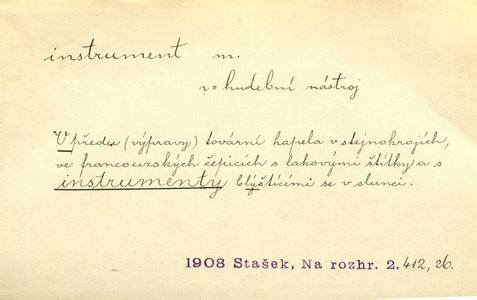 instrument m.
= hudební nástroj
V předu (výpravy) tovární kapela v stejnokrojích,
ve francouzských čepicích s lakovými štítky a s
instrumenty blýštícími se v slunci.
1908 Stašek, Na rozhr. 2. 412, 26.